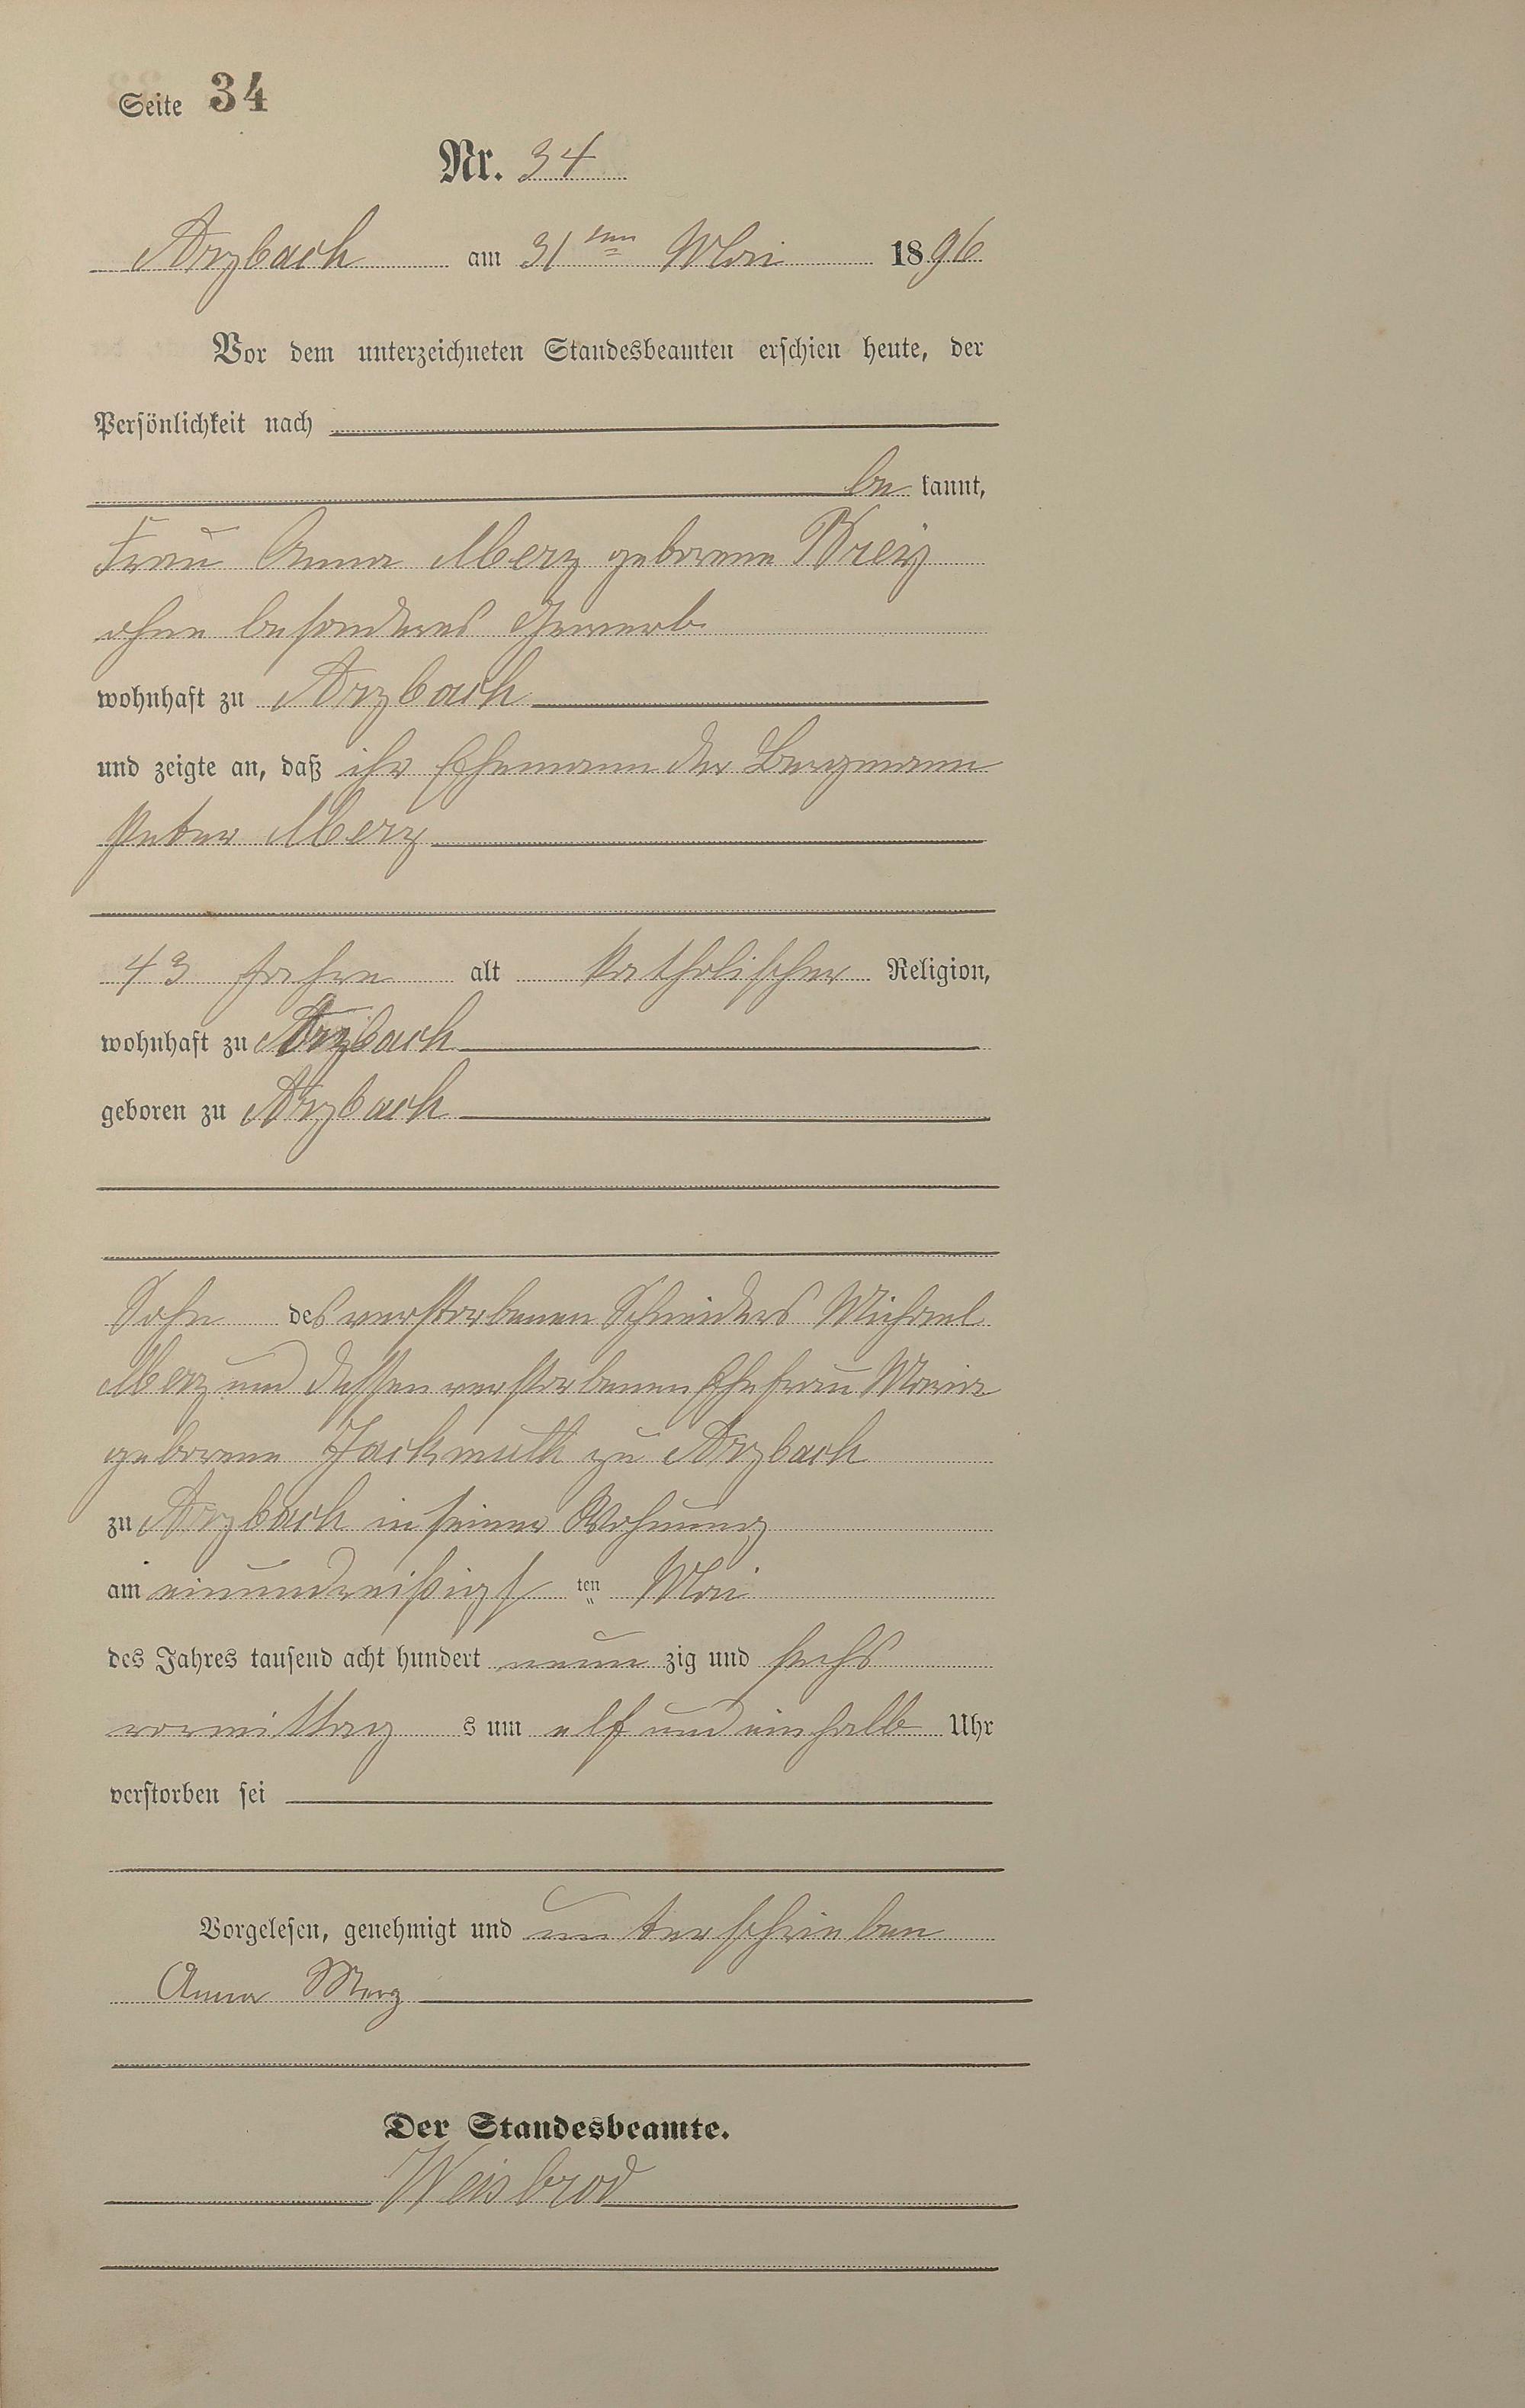 Seite 34
Nr. 34
Arzbach am 31ten Mai 1896
Vor dem unterzeichneten Standesbeamten erschien heute, der
Persönlichkeit nach
be kannt,
Frau Anna Merz geborene
ohne besonderes Gewerb
wohnhaft zu Arzbach
und zeigte an, daß ihr Ehemann der Bergmann
Peter Merz
43 Jahre alt katholischer Religion,
wohnhaft zu Arzbach
geboren zu Arzbach
Sohn des verstorbenen Schneiders Michael
Merz und dessen verstorbenen Ehefrau Maria
geborene Jackmuth zu Arzbach
zu Arzbach in seiner Wohnung
am einunddreißigsten Mai
des Jahres tausend acht hundert neun zig und sechs
vormittag s um elf und ein halb Uhr
verstorben sei
Vorgelesen, genehmigt und unterschrieben
Anna Merz
Der Standesbeamte.
Weisbrod